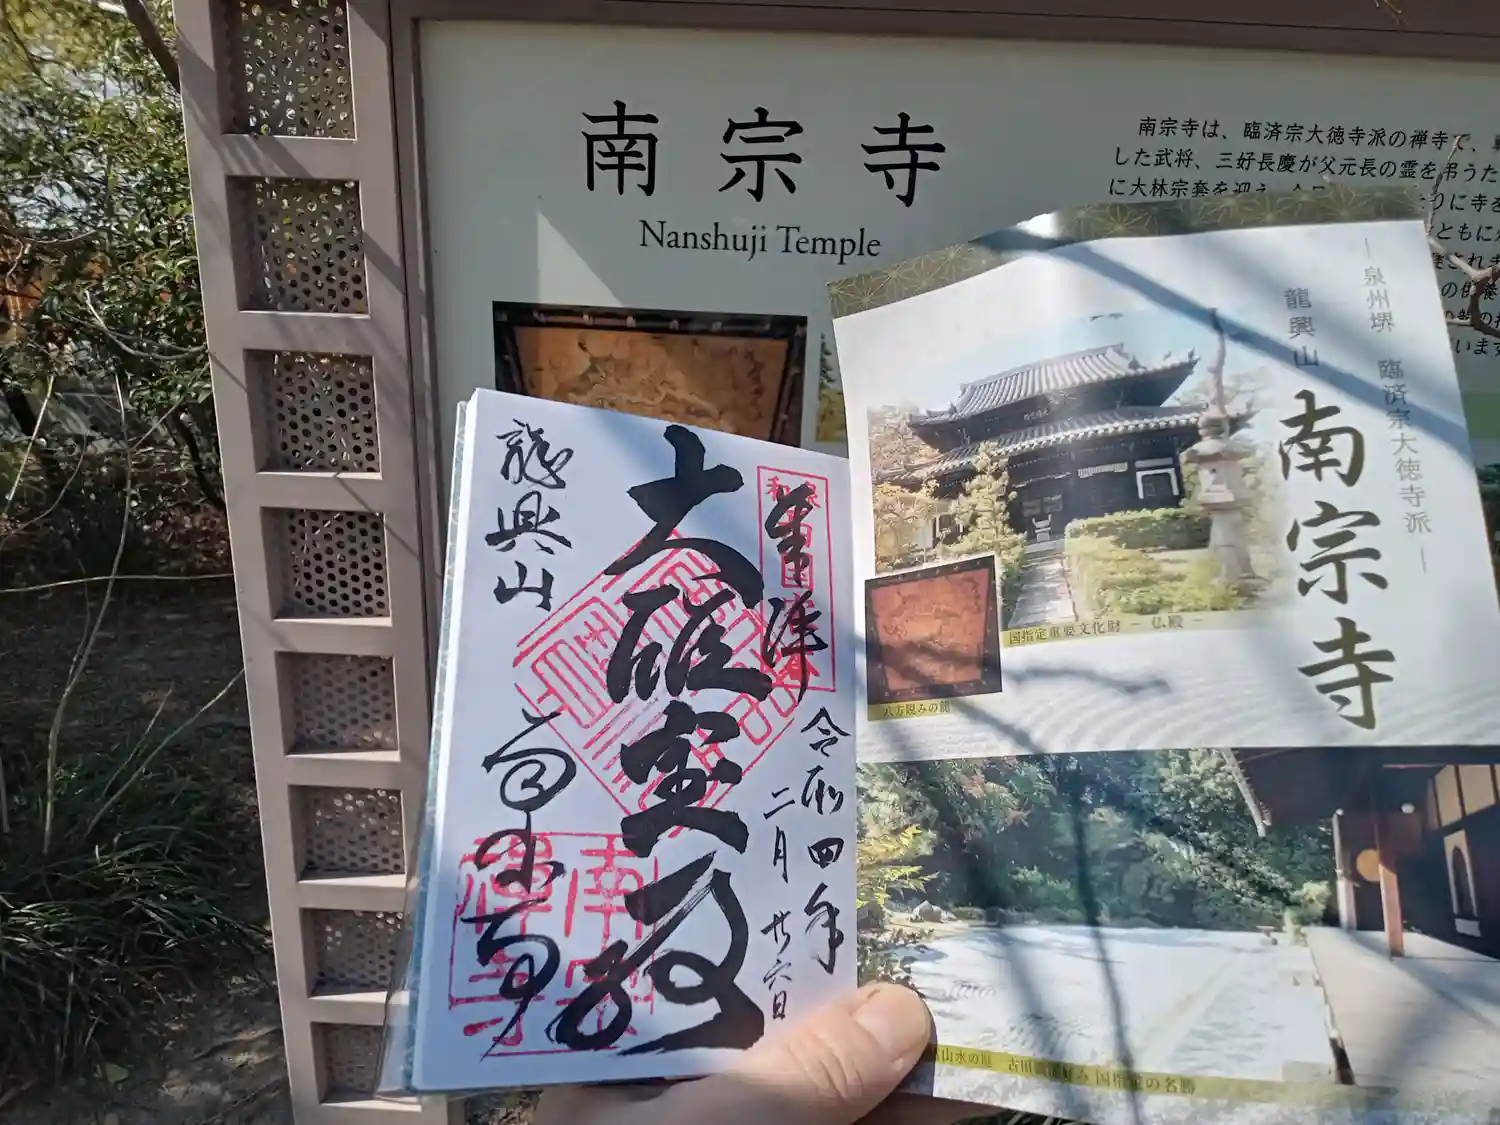 南宗寺
Nanshuji Temple
南宗寺は、臨済宗大徳寺派の禅寺で、
した武将、三好長慶が父元長の霊を弔うた
に大林宗套を迎え、今日
りに寺を
ともに
され
の供養
います
― 泉州堺 臨済宗大徳寺派 ―
龍興山
南宗寺
国指定重要文化財 － 仏殿 －
八方睨みの龍
山水の庭
国指定の名勝
奉拝
令和四年
二月廿六日
大雄宝殿
龍興山
南宗寺
南宗
禅寺